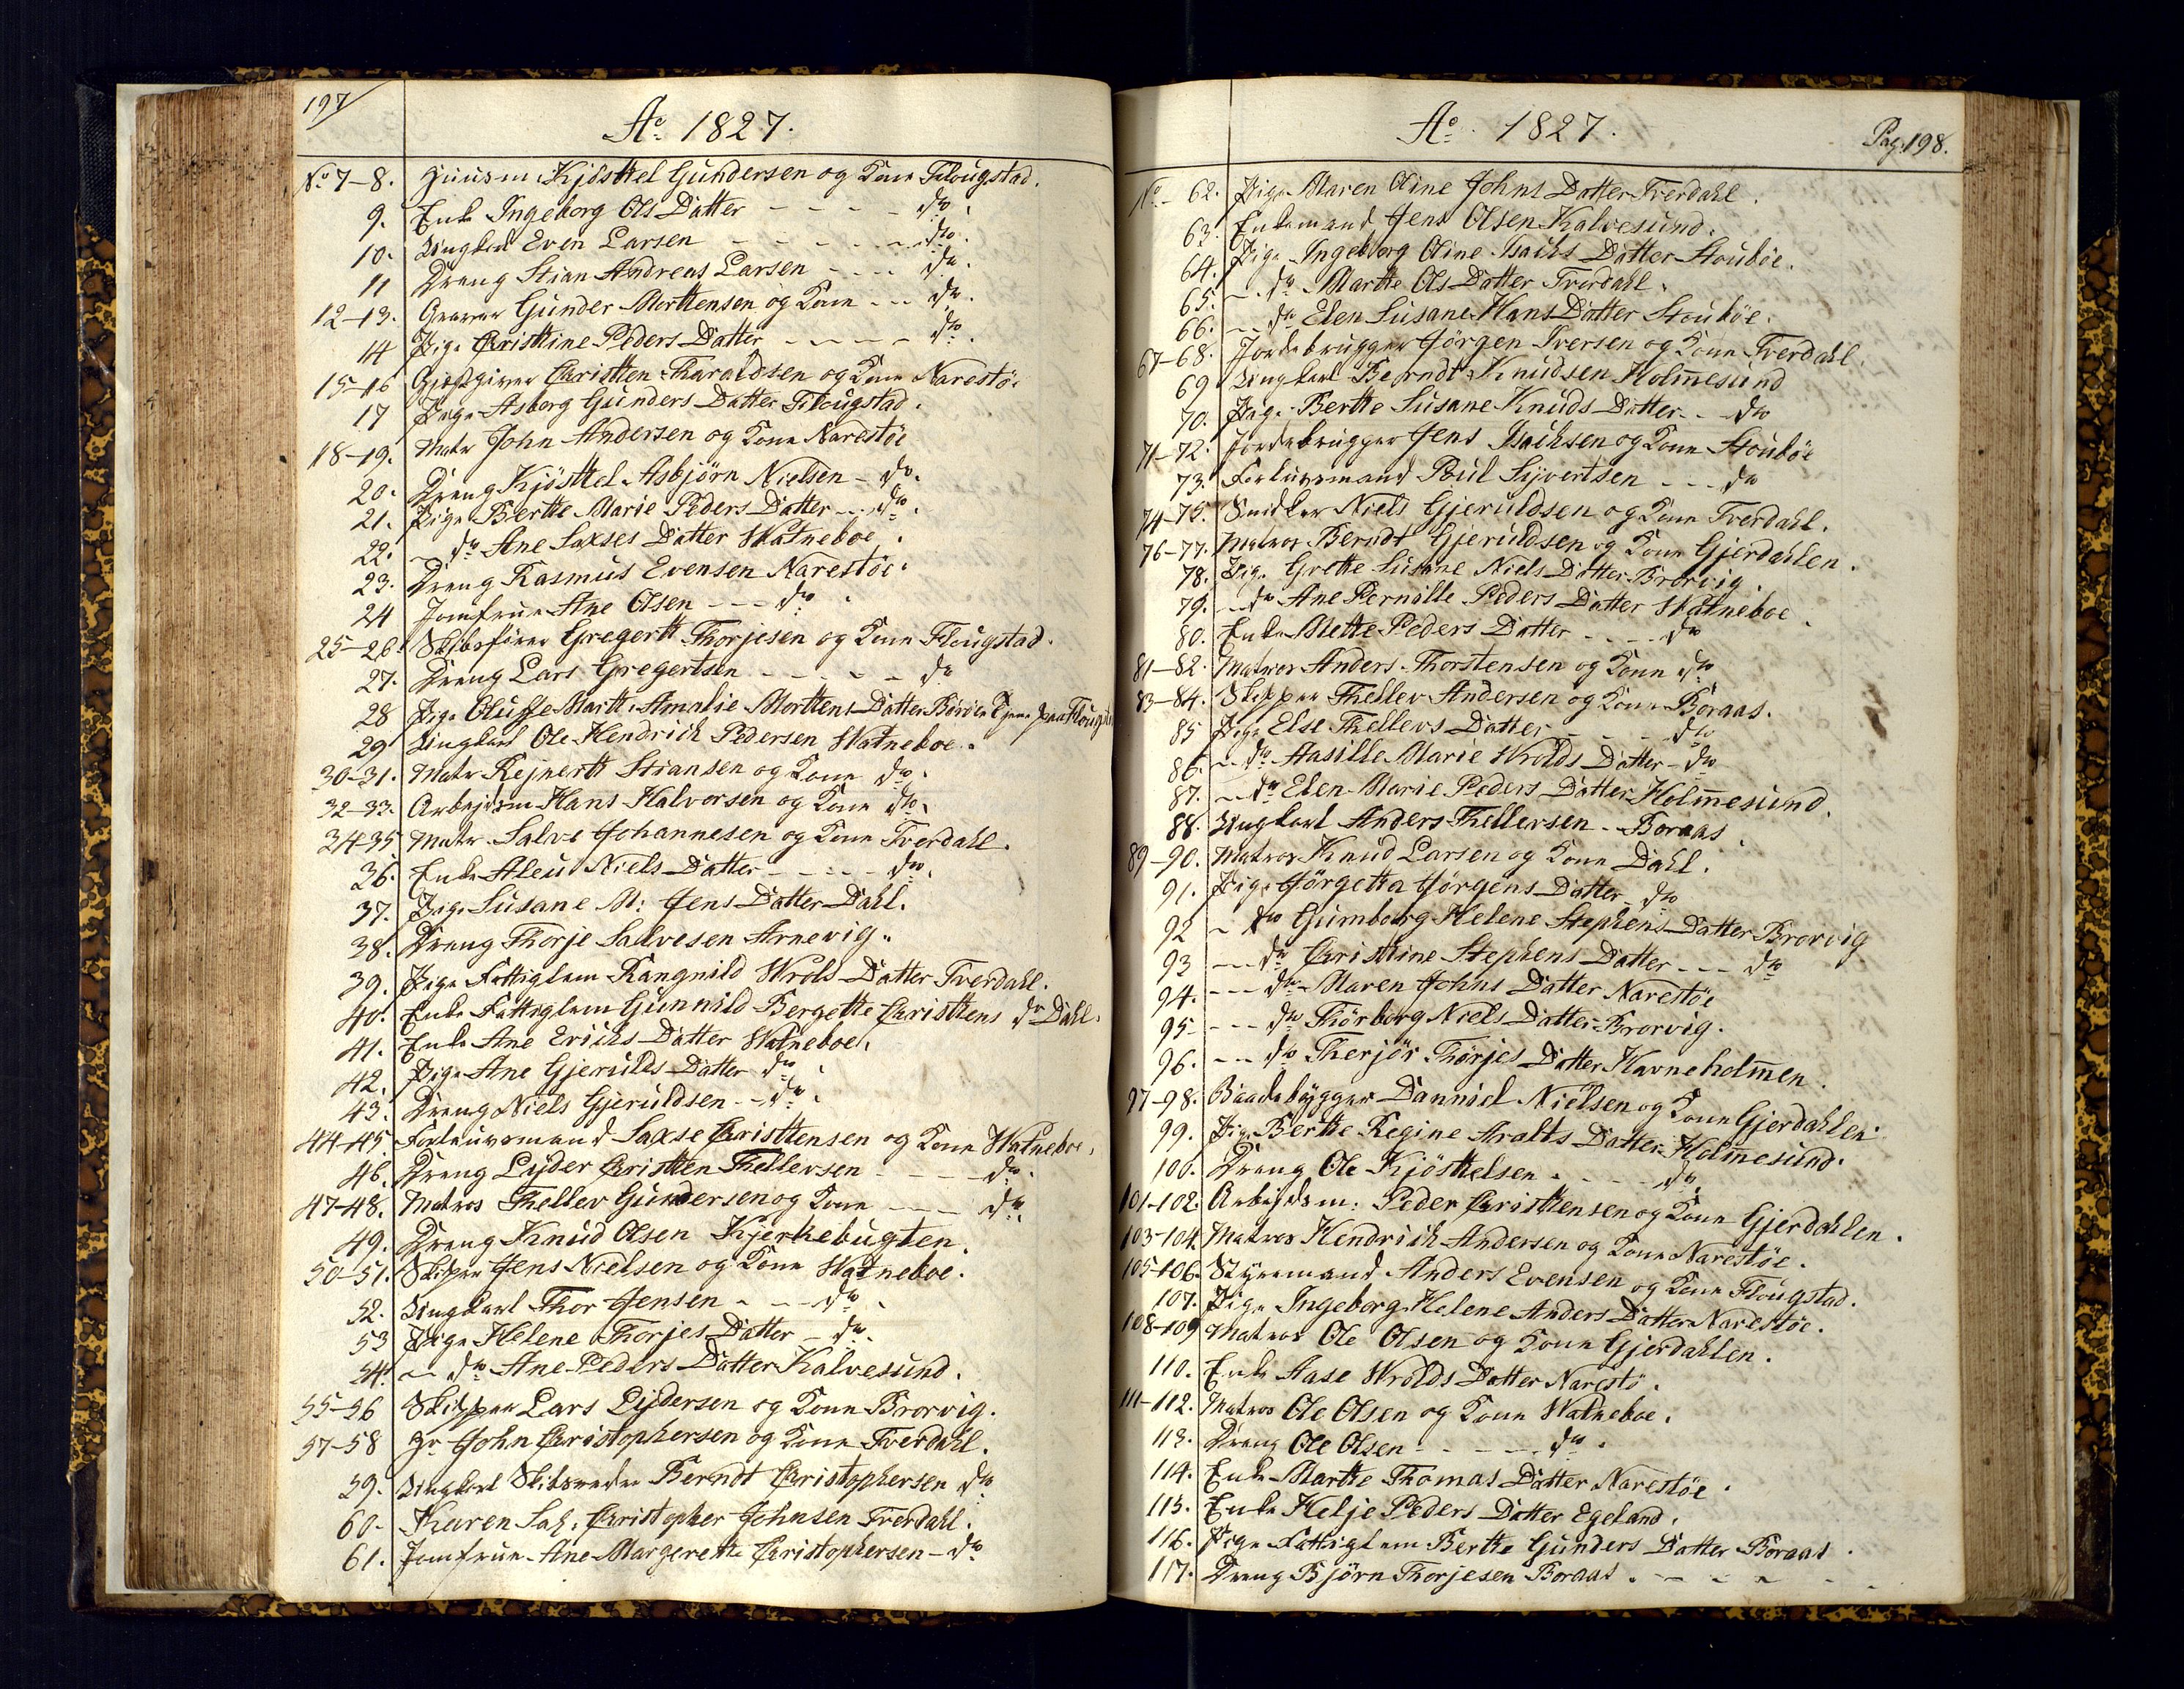 197
Ao 1827.
No 7-8. Huusm: Kjösttel Gundersen og Kone Flougstad.
9. Enke Ingeborg Ols Datter - - - - do.
10. Ungkarl Even Larsen - - - - - do.
11 Dreng Stian Andreas Larsen - - - do.
12-13. Gunder Morttensen og Kone - - do.
14 Pige Christine Peders Datter - - - - do.
15-16 Gjæstgiver Christten Tharaldsen og Kone Narestöe
17 Pige Asborg Gunders Datter Flougstad.
18-19. Matr John Andersen og Kone Narestöe
20. Dreng Kjösttel Asbjörn Nielsen - do.
21. Pige Bertte Marie Peders Datter - do.
22. - do Ane Saxses Datter Watneboe.
23. Dreng Rasmus Evensen Narestöe.
24 Jomfrue Ane Olsen - - - do.
25-26. Skibsfører Gregertt Thorjesen og Kone Flougstad.
27. Dreng Lars Gregertsen - - - - do
28 Pige Oluffe Martte Amalie Morttens Datter Böröen tjene paa Flougst
29 Ungkarl Ole Hendrich Pedersen Watneboe.
30-31. Matr Rejnertt Stiansen og Kone do.
32-33. Arbejdsm Hans Halvorsen og Kone do.
34-35 Matr Salve Johannesen og Kone Tverdahl.
36. Enke Aleu Niels Datter - - - - do.
37. Pige Susane M: Jens Datter Dahl.
38. Dreng Thorje Salvesen Arnevig.
39. Pige Fattiglem Rangnild Wrols Datter Tverdahl.
40. Enke Fattiglem Gunnild Bergette Christtens dr Dahl.
41. Enke Ane Erichs Datter Watneboe.
42. Pige Ane Gjerulds Datter do.
43. Dreng Niels Gjeruldsen - - do.
44-45. Forlauvsmand Saxse Christtensen og Kone Watneboe.
46. Dreng Lyder Christten Thellevsen - - - - do.
47-48. Matros Thellev Gundersen og Kone - - - do.
49. Dreng Knud Olsen Kjerkebugten.
50-51. Skipper Jens Nielsen og Kone Watneboe.
52. Ungkarl Thor Jensen - - - do.
53 Pige Helene Thorjes Datter - do.
54. - do Ane Peders Datter Kalvesund.
55-56 Skipper Lars Lydersen og Kone Brorvig.
57-58 Hr John Christophersen og Kone Tverdahl.
59. Ungkarl Skibsreder Berndt Christophersen do
60. Karen Sal. Christopher Johnsen Tverdahl.
61. Jomfrue Ane Margerette Christophersen - do
Ao. 1827.
Pag. 198.
No. 62. Pige Maren Oline Johns Datter Tverdahl.
63. Enkemand Jens Olsen Kalvesund.
64. Pige Ingeborg Oline Isachs Datter Stouböe.
65. - do Martte Ols Datter Tverdahl.
66. - do Elen Susane Hans Datter Stouböe.
67-68. Jordebrugger Jörgen Iversen og Kone Tverdahl.
69 Ungkarl Berndt Knudsen Holmesund
70. Pige Bertte Susane Knuds Datter - do
71-72. Jordebrugger Jens Isachsen og Kone Stouböe
73. Forlauvsmand Poul Syvertsen - - - do
74-75. Snidker Niels Gjeruldsen og Kone Tverdahl.
76-77. Matros Berndt Gjeruldsen og Kone Gjerdahlen.
78. Pige Grette Susane Niels Datter Brorvig.
79. - do Ane Pernille Peders Datter Watneboe.
80. Enke Mette Peders Datter - - - do
81-82. Matros Anders Thorstensen og Kone do
83-84. Skipper Thellev Andersen og Kone Boraas.
85 Pige Else Thellevs Datter - - - do
86. - do Aasille Marie Wrolds Datter - do
87. - do Elen Marie Peders Datter Holmesund.
88. Ungkarl Anders Thellevsen - Boraas
89-90. Matros Knud Larsen og Kone Dahl.
91. Pige Jörgetta Jörgens Datter do
92 - do Gumborg Helene Stephens Datter Brorvig
93 - - do Christtine Stephens Datter - - - do
94. - - - do Maren Johns Datter Narestöe
95- - - - do Thörborg Niels Datter Brorvig.
96. - - do Therjör Thörjes Datter Havneholmen.
97-98. Baadebygger Danniel Nielsen og Kone Gjerdahlen.
99. Pige Bertte Regine Aralts Datter Holmesund.
100. Dreng Ole Kjösttelsen - - - - do
101-102. Arbejdsm: Peder Christtensen og Kone Gjerdahlen.
103-104 Matros Hendrich Andersen og Kone Narestöe.
105-106. Styremand Anders Evensen og Kone Flougstad.
107. Pige Ingeborg Helene Anders Datter Narestöe.
108-109 Matros Ole Olsen og Kone Gjerdahlen.
110. Enke Aase Wrolds Datter Narestö.
111-112. Matros Ole Olsen og Kone Watneboe.
113. Dreng Ole Olsen - - - - do.
114. Enke Martte Thomas Datter Narestöe.
115. Enke Helje Peders Datter Egeland.
116. Pige Fattiglem Bertte Gunders Datter Boraas.
117. Dreng Björn Thorjesen Boraas. - - - - -